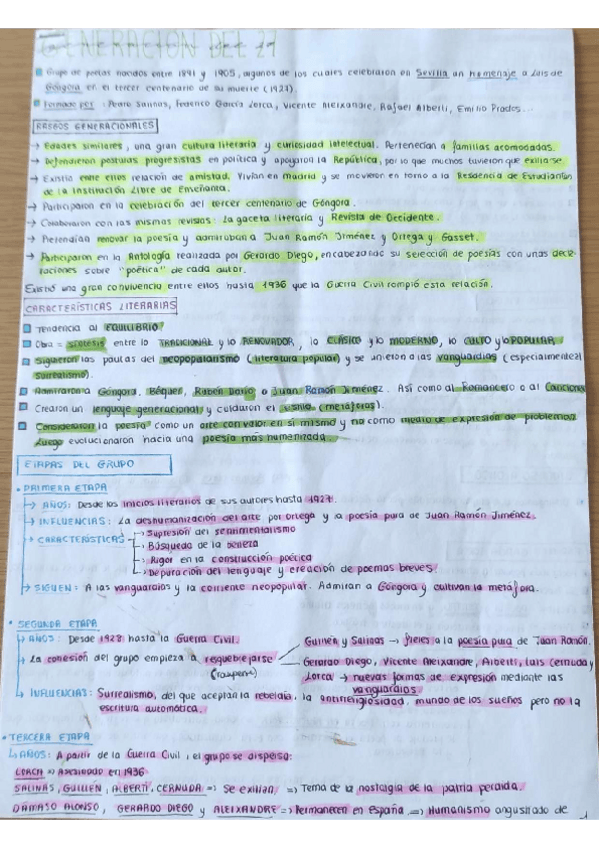 GENERACIÓN DEL 27
Grupo de poetas nacidos entre 1891 y 1905, algunos de los cuales celebraron en Sevilla un homenaje a Luis de
Góngora en el tercer centenario de su muerte (1927).
Formado por: Pedro Salinas, Federico García Lorca, Vicente Aleixandre, Rafael Alberti, Emilio Prados...
RASGOS GENERACIONALES
→ Edades similares, una gran cultura literaria y curiosidad intelectual. Pertenecían a familias acomodadas.
→ Defendieron posturas progresistas en política y apoyaron la República, por lo que muchos tuvieron que exiliarse.
→ Existía entre ellos relación de amistad. Vivían en madrid y se movieron en torno a la Residencia de Estudiantes
de la Institución Libre de Enseñanza.
→ Participaron en la celebración del tercer centenario de Góngora.
→ Colaboraron con las mismas revistas: La gaceta literaria y Revista de Occidente.
→ Pretendían renovar la poesía y admiraban a Juan Ramón Jiménez y Ortega y Gasset.
→ Participaron en la Antología realizada por Gerardo Diego, encabezando su selección de poesías con unas decla-
raciones sobre "poética" de cada autor.
Existió una gran convivencia entre ellos hasta 1936 que la Guerra Civil rompió esta relación.
CARACTERÍSTICAS LITERARIAS
Tendencia al EQUILIBRIO
Obra = síntesis entre lo TRADICIONAL y lo RENOVADOR, lo CLÁSICO y lo MODERNO, lo CULTO y lo POPULAR.
Siguieron las pautas del neopopularismo (literatura popular) y se unieron a las vanguardias (especialmente el
Surrealismo).
Admiraron a Góngora, Béquer, Rubén Darío o Juan Ramón Jiménez. Así como al Romancero o al Cancionero
Crearon un lenguaje generacional y cuidaron el estilo (metáforas).
Consideraron la poesía como un arte con valor en sí mismo y no como medio de expresión de problemas.
Luego evolucionaron hacia una poesía más humanizada.
ETAPAS DEL GRUPO
• PRIMERA ETAPA
→ AÑOS: Desde los inicios literarios de sus autores hasta 1927.
→ INFLUENCIAS: La deshumanización del arte por Ortega y la poesía pura de Juan Ramón Jiménez.
→ CARACTERÍSTICAS → Supresión del sentimentalismo
→ Búsqueda de la belleza
→ Rigor en la construcción poética
→ Depuración del lenguaje y creación de poemas breves.
→ SIGUEN: A las vanguardias y la corriente neopopular. Admiran a Góngora y cultivan la metáfora.
• SEGUNDA ETAPA
→ AÑOS: Desde 1928 hasta la Guerra Civil.
→ La cohesión del grupo empieza a resquebrejarse
Guillén y Salinas → fieles a la poesía pura de Juan Ramón.
Gerardo Diego, Vicente Aleixandre, Alberti, Luis Cernuda y
Lorca → nuevas formas de expresión mediante las
vanguardias
→ INFLUENCIAS: Surrealismo, del que aceptan la rebeldía, la antirreligiosidad, mundo de los sueños pero no la
escritura automática.
• TERCERA ETAPA
↳ AÑOS: A partir de la Guerra Civil, el grupo se dispersa:
LORCA => Asesinado en 1936
SALINAS, GUILLÉN, ALBERTI, CERNUDA => Se exilian => Tema de la nostalgia de la patria perdida.
DÁMASO ALONSO, GERARDO DIEGO y ALEIXANDRE => Permanecen en España => Humanismo angustiado de